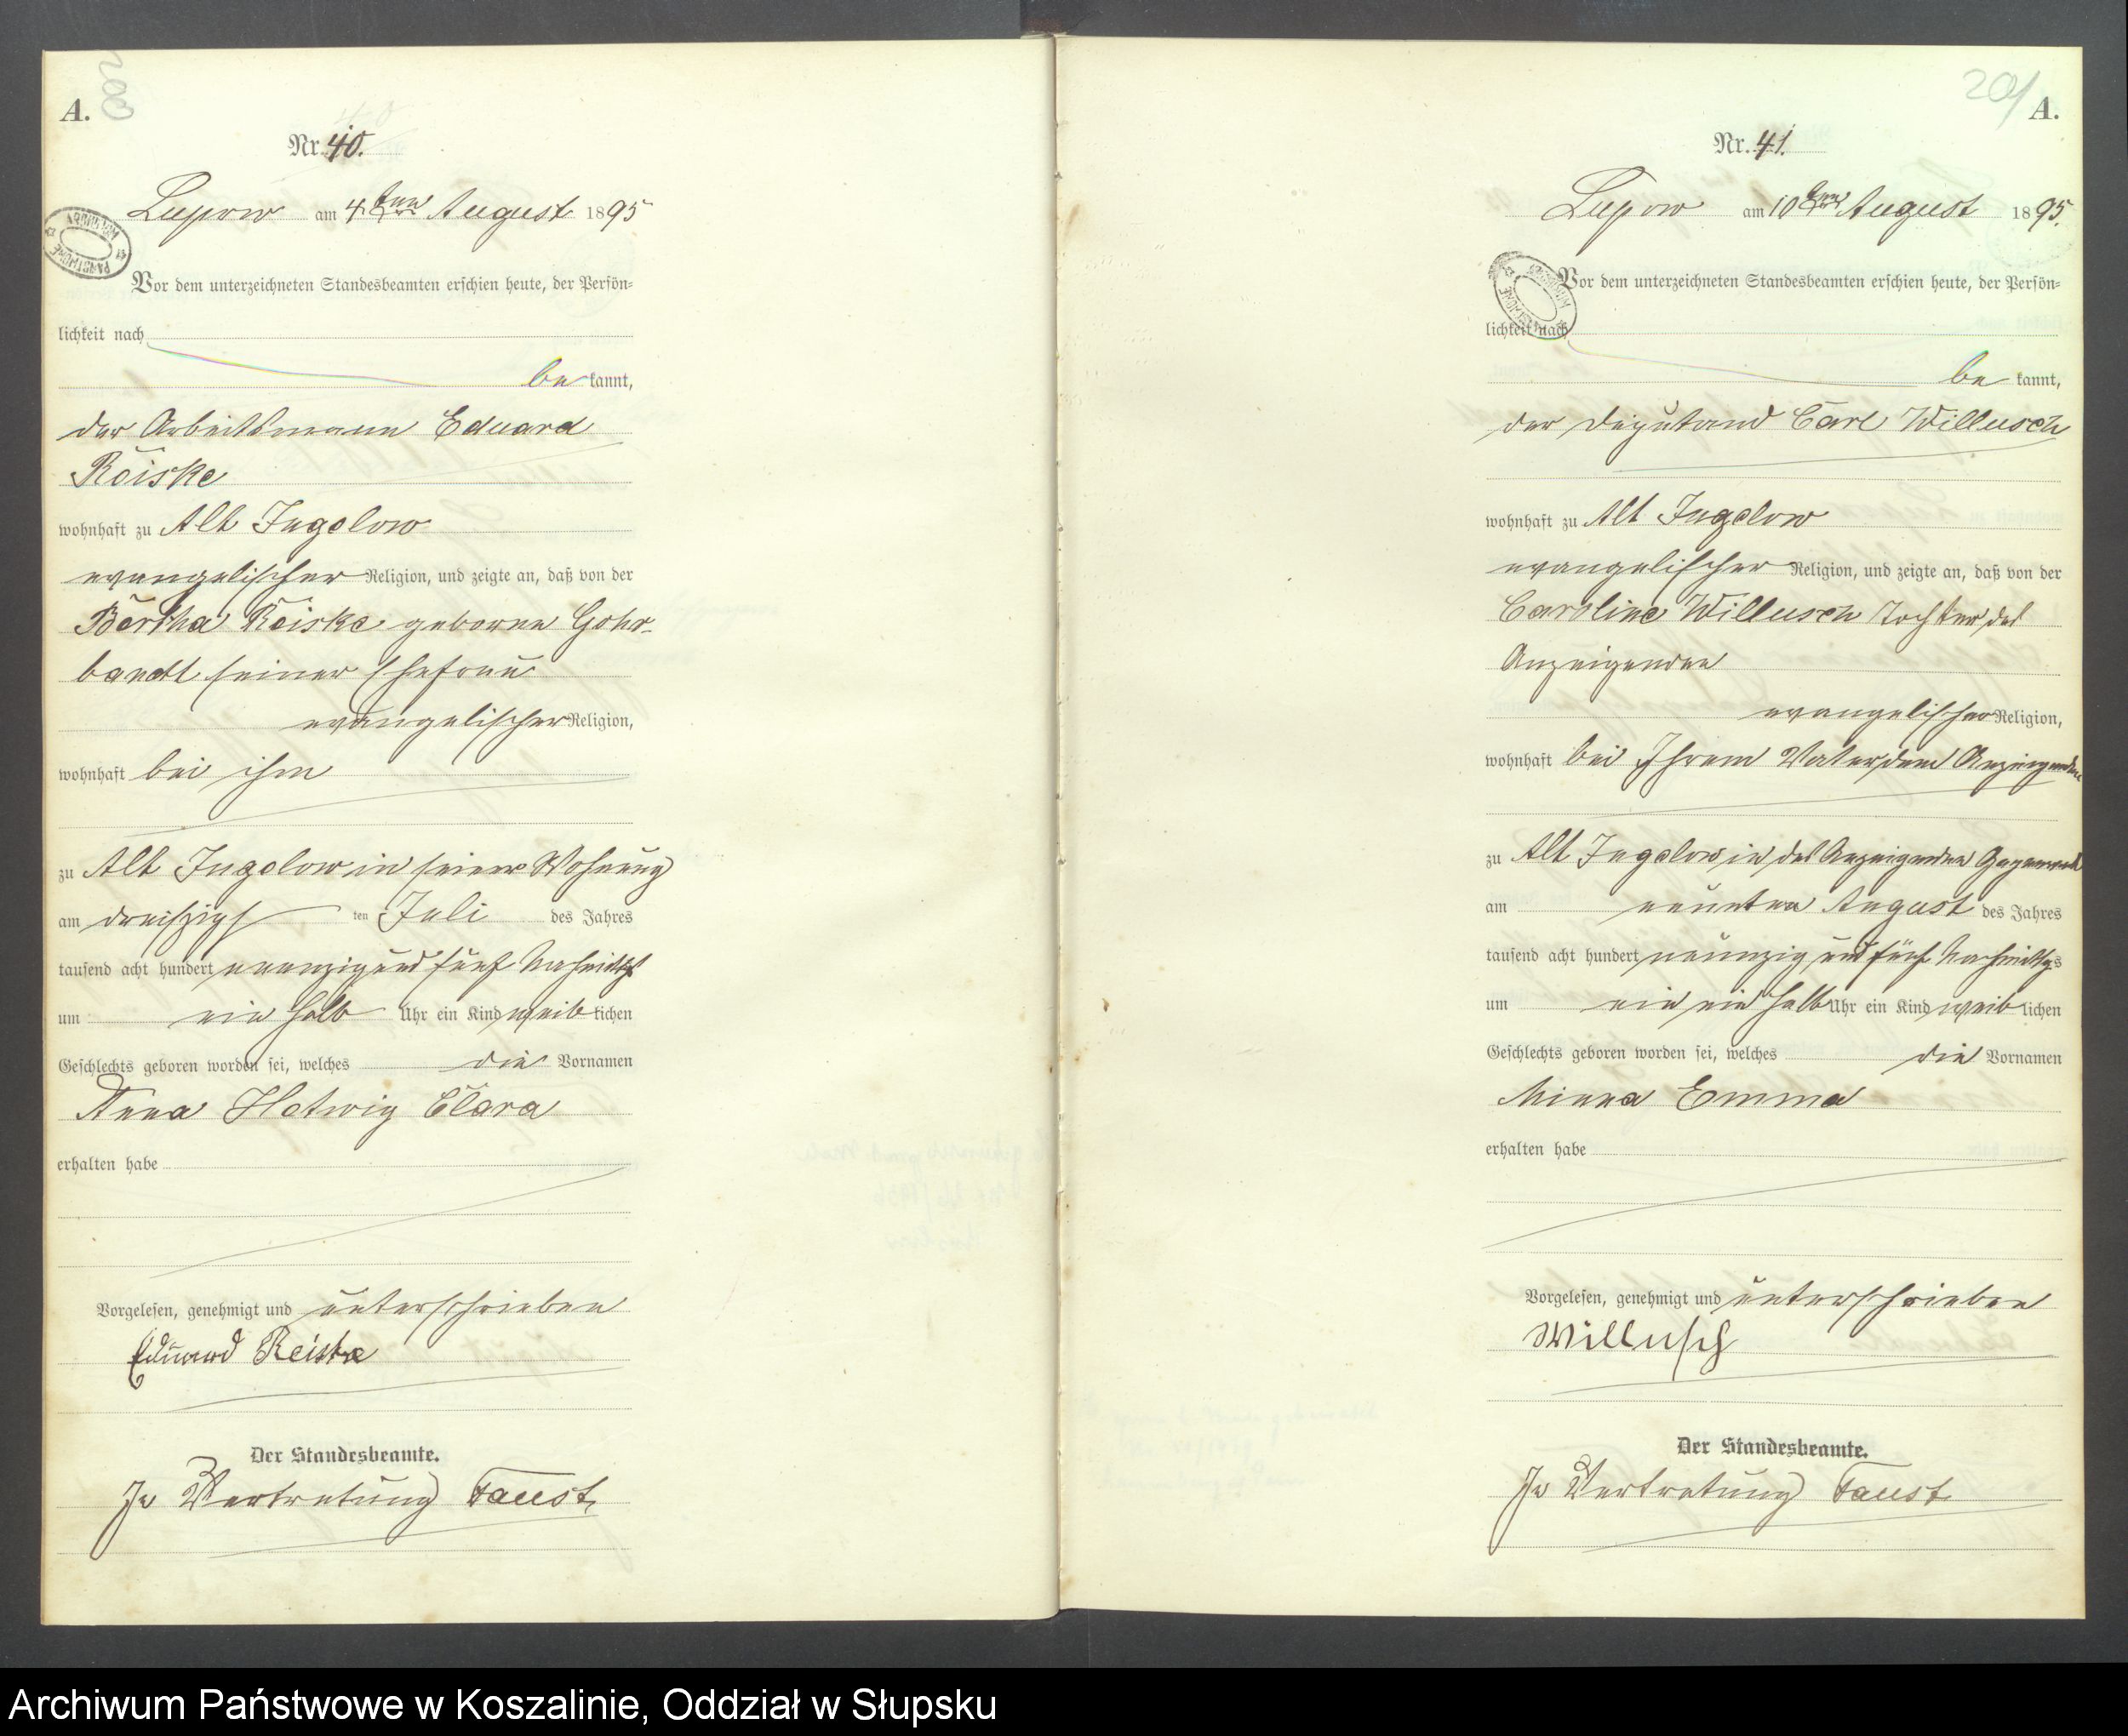 200
A.
Nr. 40.
Lupow am 4ten August 1895
Vor dem unterzeichneten Standesbeamten erschien heute, der Persön-
lichkeit nach
be kannt,
der Arbeitsmann Eduard
Reiske
wohnhaft zu Alt Jugelow
evangelischer Religion, und zeigte an, daß von der
Bertha Reiske geborene Gohr-
bandt seiner Ehefrau
evangelischer Religion,
wohnhaft bei ihm
zu Alt Jugelow in seiner Wohnung
am dreißigs ten Juli des Jahres
tausend acht hundert neunzig und fünf Nachmittgs
um ein halb Uhr ein Kind weib lichen
Geschlechts geboren worden sei, welches die Vornamen
Anna Hetwig Clara
erhalten habe
Vorgelesen, genehmigt und unterschrieben
Eduard Reiske
Der Standesbeamte.
In Vertretung Faust
201
A.
Nr. 41.
Lupow am 10ten August 1895.
Vor dem unterzeichneten Standesbeamten erschien heute, der Persön-
lichkeit nach
be kannt,
der Deputand Carl Willusch
wohnhaft zu Alt Jugelow
evangelischer Religion, und zeigte an, daß von der
Caroline Willusch Tochter des
Anzeigenden
evangelischer Religion,
wohnhaft bei Ihrem Vater, dem Anzeigenden
zu Alt Jugelow in des Anzeigenden Gegenwart
am neunten August des Jahres
tausend acht hundert neunzig und fünf Nachmittgs
um ein ein halb Uhr ein Kind weib lichen
Geschlechts geboren worden sei, welches die Vornamen
Minna Emma
erhalten habe
Vorgelesen, genehmigt und unterschrieben
Willusch
Der Standesbeamte.
In Vertretung Faust
Archiwum Państwowe w Koszalinie, Oddział w Słupsku